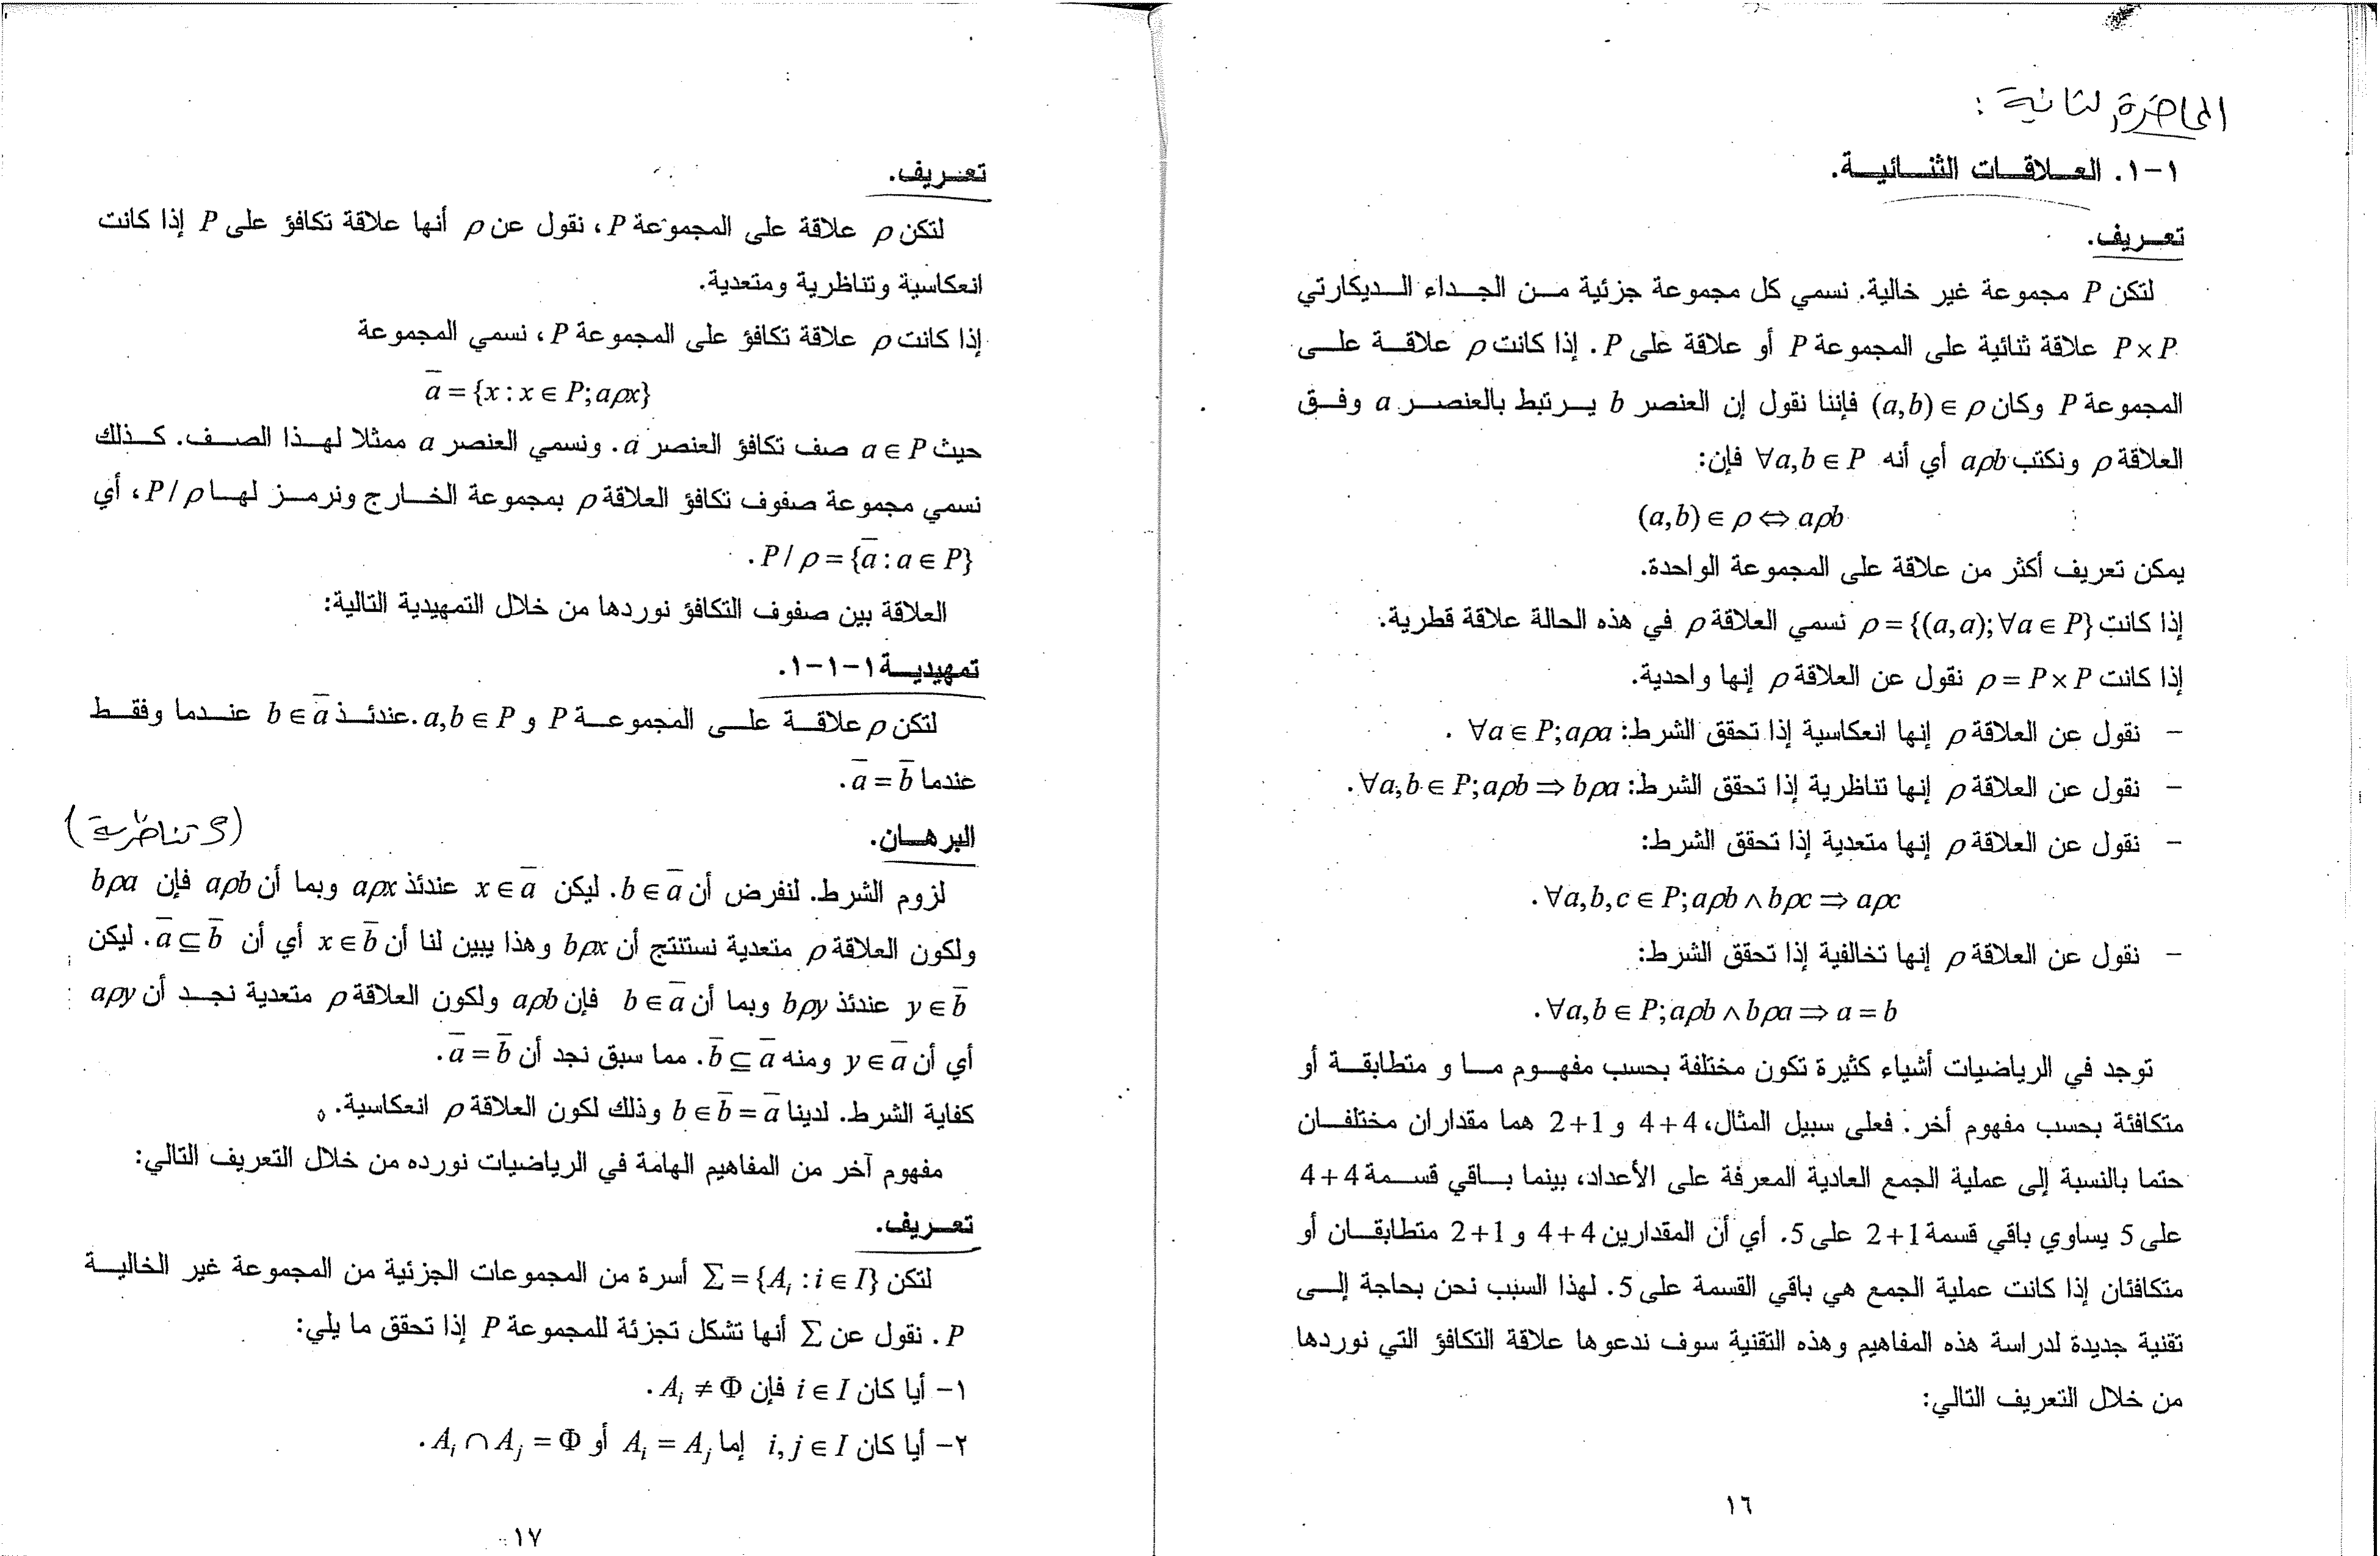 المحاضرة الثانية :
١-١. العلاقات الثنائية.
تعريف.
لتكن P مجموعة غير خالية. نسمي كل مجموعة جزئية من الجداء الديكارتي
P×P علاقة ثنائية على المجموعة P أو علاقة على P. إذا كانت ρ علاقة على
المجموعة P وكان (a,b)∈ρ فإننا نقول إن العنصر b يرتبط بالعنصر a وفق
العلاقة ρ ونكتب aρb أي أنه ∀a,b∈P فإن:
(a,b)∈ρ⇔aρb
يمكن تعريف أكثر من علاقة على المجموعة الواحدة.
إذا كانت ρ={(a,a);∀a∈P} نسمي العلاقة ρ في هذه الحالة علاقة قطرية.
إذا كانت ρ=P×P نقول عن العلاقة ρ إنها واحدية.
- نقول عن العلاقة ρ إنها انعكاسية إذا تحقق الشرط: ∀a∈P;aρa .
- نقول عن العلاقة ρ إنها تناظرية إذا تحقق الشرط: ∀a,b∈P;aρb⇒bρa.
- نقول عن العلاقة ρ إنها متعدية إذا تحقق الشرط:
∀a,b,c∈P;aρb∧bρc⇒aρc.
- نقول عن العلاقة ρ إنها تخالفية إذا تحقق الشرط:
∀a,b∈P;aρb∧bρa⇒a=b.
توجد في الرياضيات أشياء كثيرة تكون مختلفة بحسب مفهوم ما و متطابقة أو
متكافئة بحسب مفهوم أخر. فعلى سبيل المثال، 4+4 و 2+1 هما مقداران مختلفان
حتما بالنسبة إلى عملية الجمع العادية المعرفة على الأعداد، بينما باقي قسمة 4+4
على 5 يساوي باقي قسمة 2+1 على 5. أي أن المقدارين 4+4 و 2+1 متطابقان أو
متكافئان إذا كانت عملية الجمع هي باقي القسمة على 5. لهذا السبب نحن بحاجة إلى
تقنية جديدة لدراسة هذه المفاهيم وهذه التقنية سوف ندعوها علاقة التكافؤ التي نوردها
من خلال التعريف التالي:
١٦
تعريف.
لتكن ρ علاقة على المجموعة P، نقول عن ρ أنها علاقة تكافؤ على P إذا كانت
انعكاسية وتناظرية ومتعدية.
إذا كانت ρ علاقة تكافؤ على المجموعة P، نسمي المجموعة
a̅={x:x∈P;aρx}
حيث a∈P صف تكافؤ العنصر a. ونسمي العنصر a ممثلا لهذا الصف. كذلك
نسمي مجموعة صفوف تكافؤ العلاقة ρ بمجموعة الخارج ونرمز لها P/ρ، أي
P/ρ={a̅:a∈P}.
العلاقة بين صفوف التكافؤ نوردها من خلال التمهيدية التالية:
تمهيدية ١-١-١.
لتكن ρ علاقة على المجموعة P و a,b∈P. عندئذ b∈a̅ عندما وفقط
عندما a̅=b̅.
البرهان. (ρ تناظرية)
لزوم الشرط. لنفرض أن b∈a̅. ليكن x∈a̅ عندئذ aρx وبما أن aρb فإن bρa
ولكون العلاقة ρ متعدية نستنتج أن bρx وهذا يبين لنا أن x∈b̅ أي أن a̅⊆b̅. ليكن
y∈b̅ عندئذ bρy وبما أن b∈a̅ فإن aρb ولكون العلاقة ρ متعدية نجد أن aρy
أي أن y∈a̅ ومنه b̅⊆a̅. مما سبق نجد أن a̅=b̅.
كفاية الشرط. لدينا b∈b̅=a̅ وذلك لكون العلاقة ρ انعكاسية. ◊
مفهوم آخر من المفاهيم الهامة في الرياضيات نورده من خلال التعريف التالي:
تعريف.
لتكن Σ={Aᵢ:i∈I} أسرة من المجموعات الجزئية من المجموعة غير الخالية
P. نقول عن Σ أنها تشكل تجزئة للمجموعة P إذا تحقق ما يلي:
١- أيا كان i∈I فإن Aᵢ≠Φ.
٢- أيا كان i,j∈I إما Aᵢ=Aⱼ أو Aᵢ∩Aⱼ=Φ.
١٧